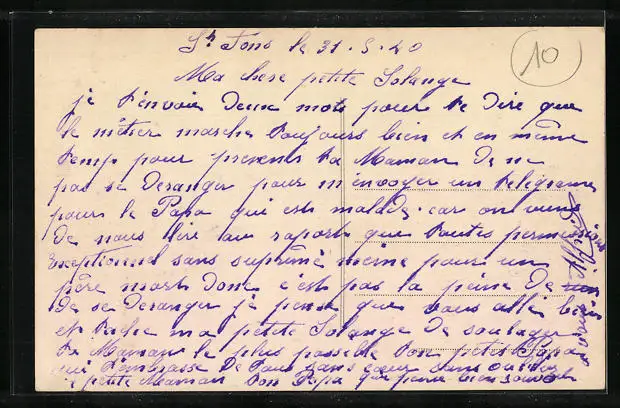 St Fons le 31.5.40
10
Ma chere petite Solange
je t'envoie deux mots pour te dire que
le métier marche toujours bien et en même
temp pour prevenir ta Maman de ne
pas se deranger pour m'envoyer un telegramme
pour le Papa qui est malade car on vient
de nous lire au raport que toutes permissions
exceptionnel sans suprimé meme pour un
père mort donc c'est pas la peine de
de se deranger je pense que vous allé bien
et tache ma petite Solange de soulager
ta Maman le plus possible ton petit Papa
qui t'embrasse de tous sans cœur sans oublier
petite Maman ton Papa qui pense bien souvent